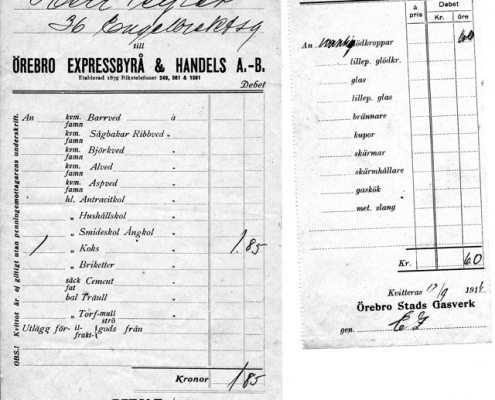 36 Engelbrektsg
till
ÖREBRO EXPRESSBYRÅ & HANDELS A.-B.
Etablerad 1879 Rikstelefoner 240, 581 & 1581
Debet
An kvm. famn Barrved à
kvm. famn Sågbakar Ribbved „
kvm. famn Björkved „
kvm. famn Alved „
kvm. famn Aspved „
hl. Antracitkol „
„ Hushållskol „
„ Smideskol Ångkol „
1 „ Koks „ 1.85
„ Briketter „
säck fat Cement „
bal Träull „
„ Torf-mull strö „
Utlägg för il- frakt- gods från
Kronor 1.85
OBS.! Kvittot är ej giltigt utan penningemottagarens underskrift.
à pris Debet
Kr. öre
An vanlig glödkroppar 60
lillep. glödkr.
glas
lillep. glas
brännare
kupor
skärmar
skärmhållare
gaskök
met. slang
Kr. 60
Kvitteras 12/9 191
Örebro Stads Gasverk
gen.